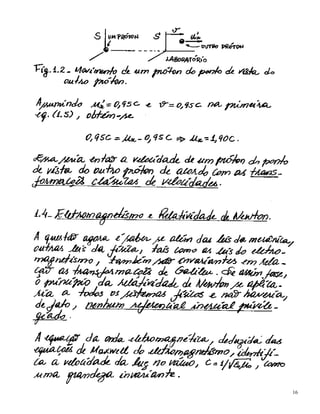 S UM PRÓTON S' v ux
OUTRO PRÓTON
LABORATÓRIO
Fig. 1.2 - Movimento do um próton do ponto de vista do
outro próton.
Assumindo u'x = 0,95c e v = 0,95c na primeira
eq. (1.5), obtém-se
0,95c = ux - 0,95c ⇒ ux = 1,90c.
Essa seria então a velocidade de um próton do ponto
de vista do outro próton de acordo com as trans-
formações clássicas de velocidades.
1.4- Eletromagnetismo e Relatividade de Newton.
A questão agora é saber se além das leis da mecânica,
outras leis da física, tais como as leis do eletro-
magnetismo, também são invariantes em rela-
ção as transformações de Galileu. Se assim fosse,
o princípio da relatividade de Newton se aplica-
ria a todos os sistemas físicos e não haveria,
de fato, nenhum referencial inercial privile-
giado.
A equação da onda eletromagnética, deduzida das
equações de Maxwell do eletromagnetismo, identifi-
ca a velocidade da luz no vácuo, c = 1/√ε₀μ₀, como
uma grandeza invariante.
16